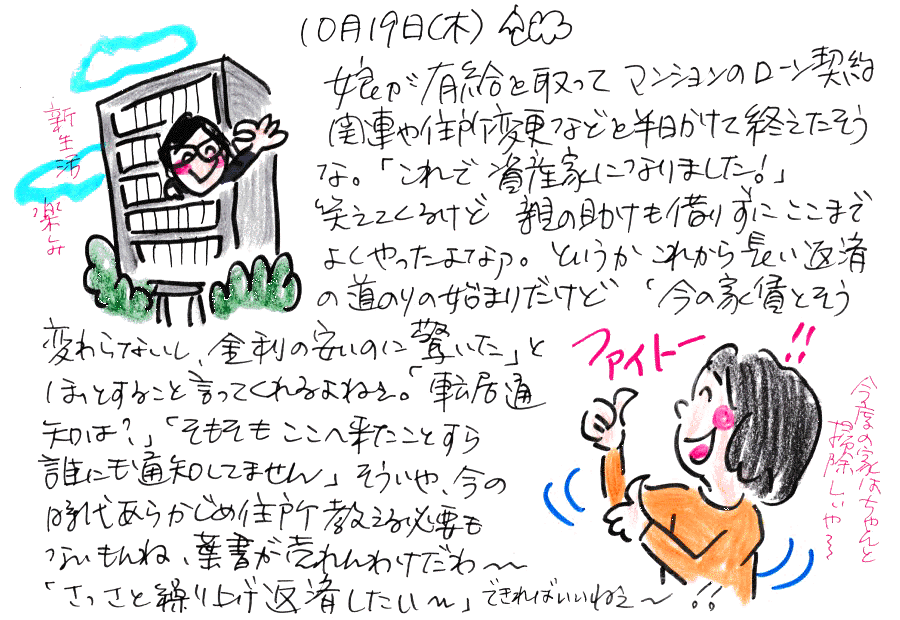 10月19日(木)
娘が有給を取って マンションのローン契約
関連や住所変更などを半日かけて終えたそう
な。「これで資産家になりました!」
笑えてくるけど 親の助けも借りずにここまで
よくやったよなァ。というか これから長い返済
の道のりの始まりだけど 「今の家賃とそう
変わらないし、金利の安いのに驚いた」と
ほっとすること言ってくれるよねぇ。「転居通
知は?」「そもそもここへ来たことすら
誰にも通知してません」そういや、今の
時代あらかじめ住所教える必要も
ないもんね、葉書が売れんわけだわ〜
「さっさと繰り上げ返済したい〜」できればいいねぇ〜!!
新生活
楽しみ
ファイトー!!
今度の家はちゃんと
掃除しいや〜